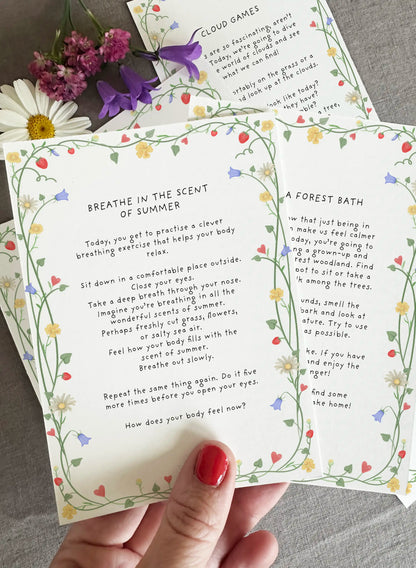 CLOUD GAMES
s are so fascinating, aren't
Today, we're going to dive
e world of clouds and see
what we can find!
ortably on the grass or a
d look up at the clouds.
look like today?
they have?
a tree,
BREATHE IN THE SCENT
OF SUMMER
Today, you get to practise a clever
breathing exercise that helps your body
relax.
Sit down in a comfortable place outside.
Close your eyes.
Take a deep breath through your nose.
Imagine you're breathing in all the
wonderful scents of summer.
Perhaps freshly cut grass, flowers,
or salty sea air.
Feel how your body fills with the
scent of summer.
Breathe out slowly.
Repeat the same thing again. Do it five
more times before you open your eyes.
How does your body feel now?
A FOREST BATH
ow that just being in
n make us feel calmer
oday, you're going to
g a grown-up and
rest woodland. Find
oot to sit or take a
k among the trees.
unds, smell the
bark and look at
ature. Try to use
as possible.
ke. If you have
and enjoy the
nger!
find some
ke home!